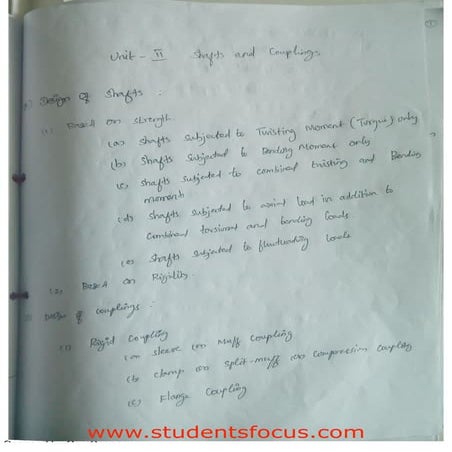 Unit - II Shafts and Couplings
Design of Shafts :
(1) Based on strength
(a) Shafts subjected to Twisting Moment (Torque) only
(b) Shafts subjected to Bending Moment only
(c) Shafts subjected to combined twisting and Bending
moments
(d) Shafts subjected to axial load in addition to
Combined torsional and bending loads
(e) Shafts subjected to fluctuating loads
(2) Based on Rigidity.
Design of couplings :
(1) Rigid Coupling
(a) sleeve (or) Muff coupling
(b) clamp (or) split-muff (or) compression coupling
(c) Flange Coupling
www.studentsfocus.com